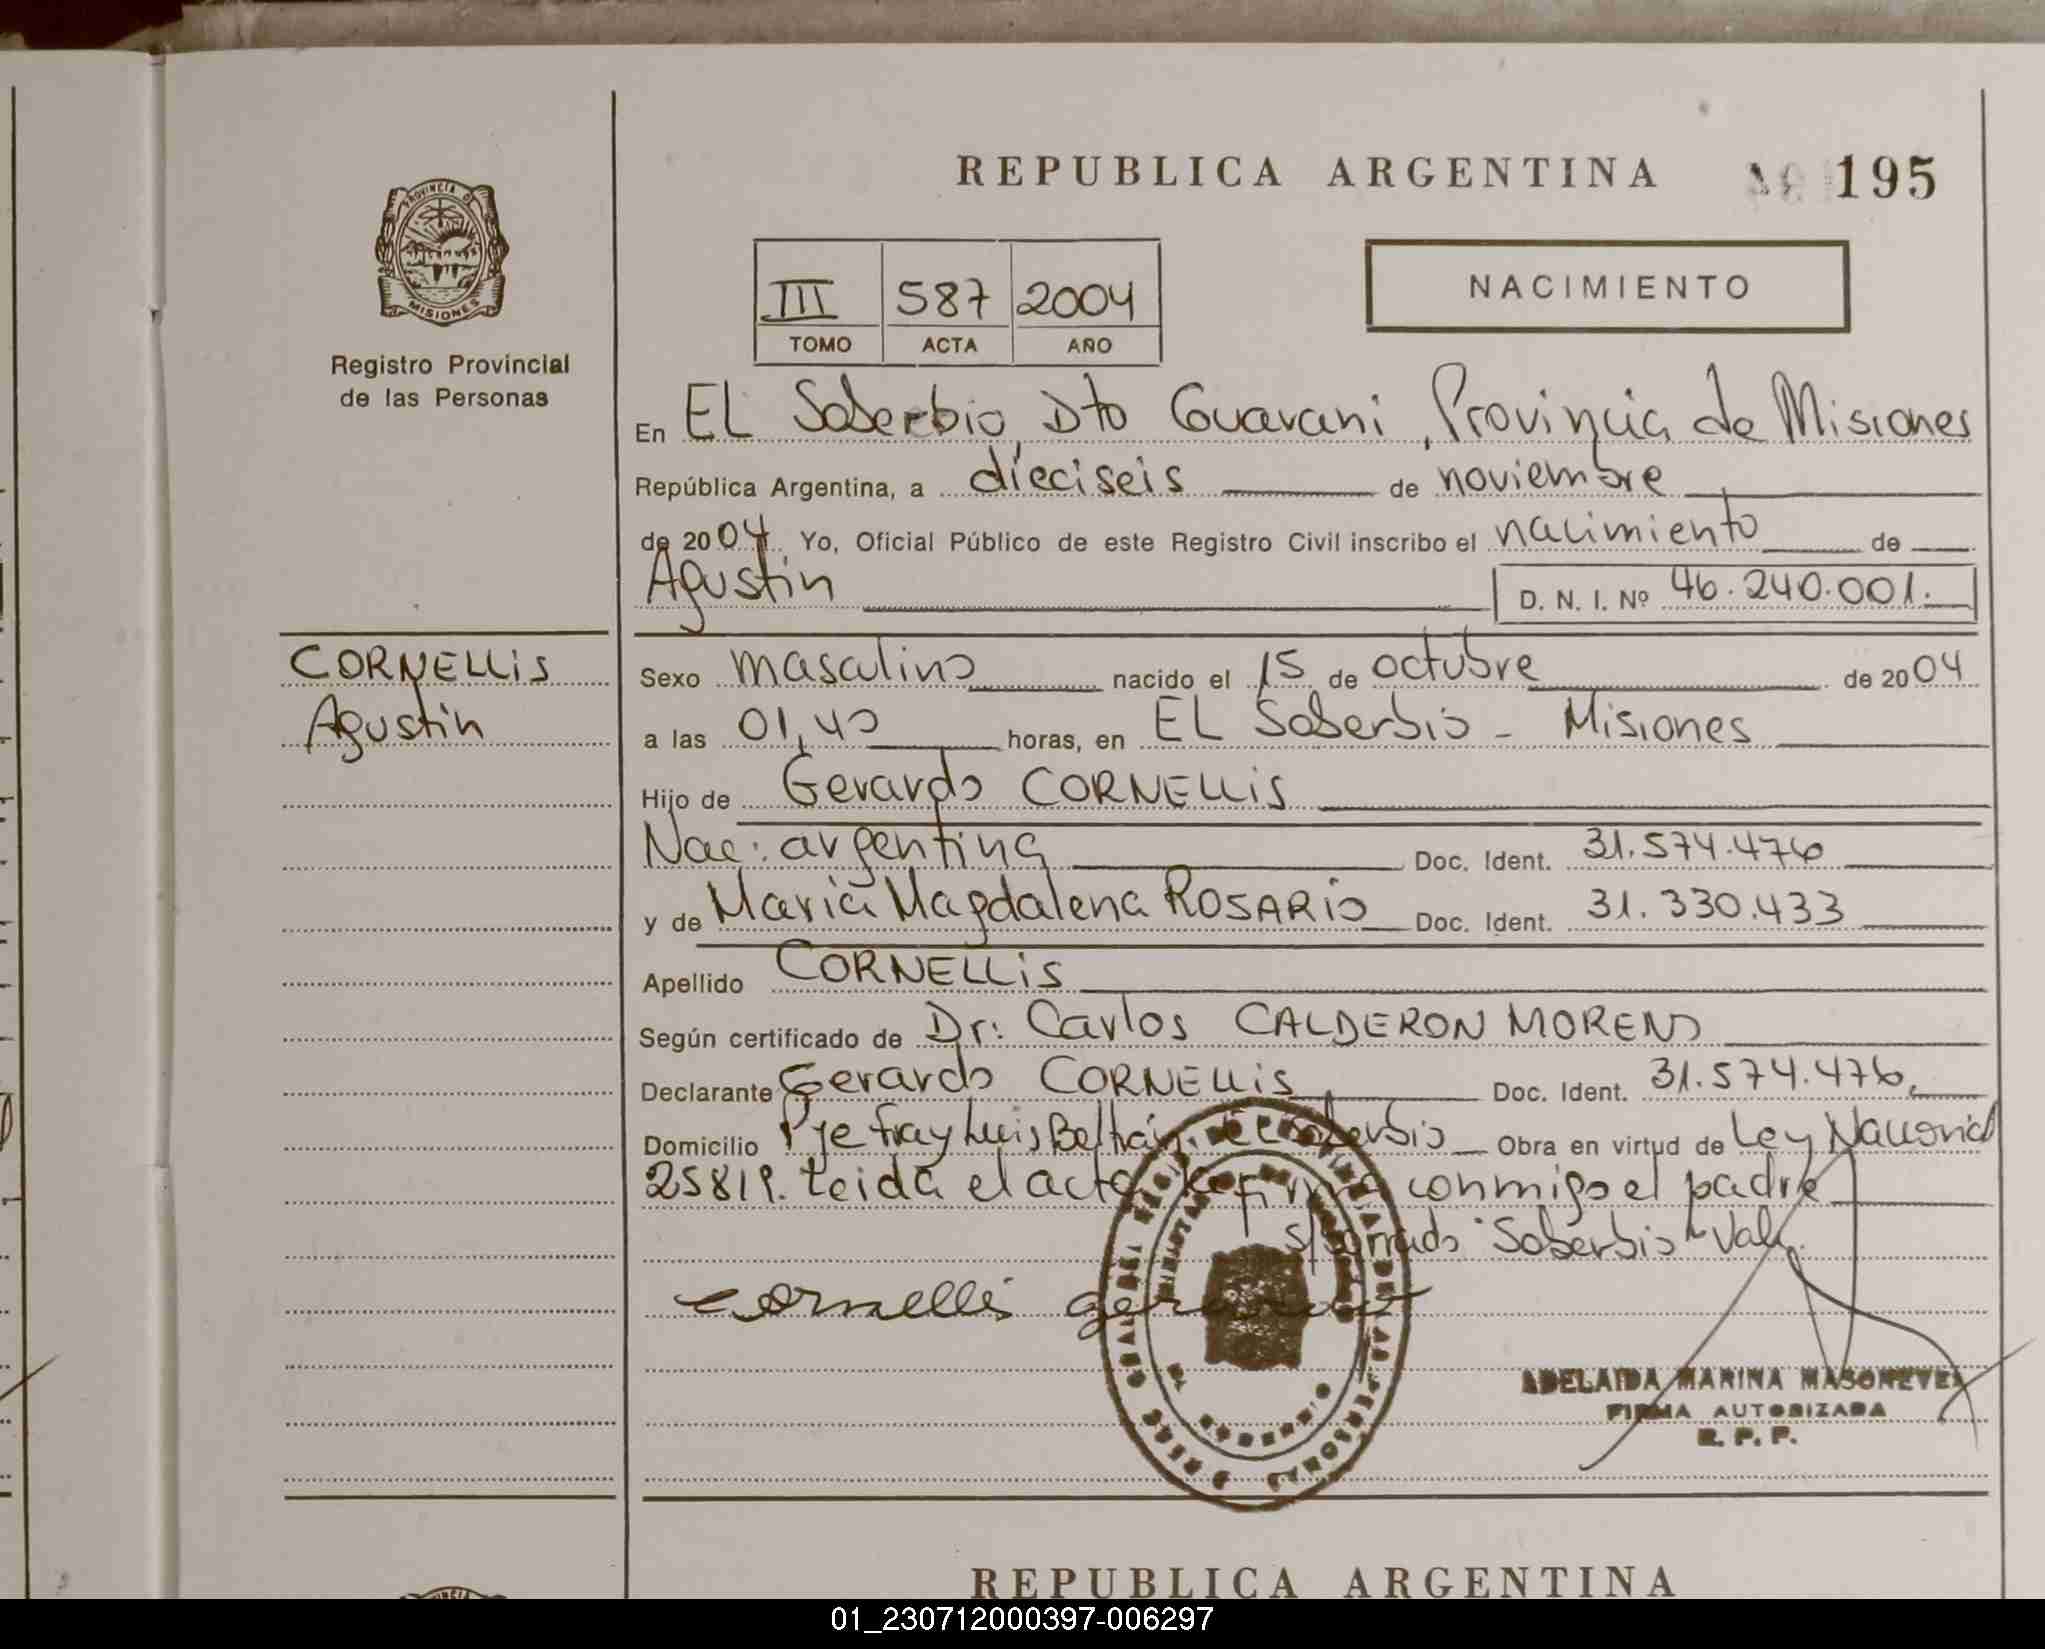 REPUBLICA ARGENTINA
195
PROVINCIA DE
MISIONES
Registro Provincial
de las Personas
III 587 2004
TOMO ACTA AÑO
NACIMIENTO
En EL Soberbio, Dto Guarani, Provincia de Misiones
República Argentina, a dieciseis de noviembre
de 2004 Yo, Oficial Público de este Registro Civil inscribo el nacimiento de
Agustin D. N. I. Nº 46.240.001.
CORNELLIS
Agustin
Sexo masculino nacido el 15 de octubre de 2004
a las 01,40 horas, en EL Soberbio - Misiones
Hijo de Gerardo CORNELLIS
Nac: argentina Doc. Ident. 31.574.476
y de Maria Magdalena ROSARIO Doc. Ident. 31.330.433
Apellido CORNELLIS
Según certificado de Dr: Carlos CALDERON MORENO
Declarante Gerardo CORNELLIS Doc. Ident. 31.574.476,
Domicilio Pje Fray Luis Beltrán. El Soberbio Obra en virtud de Ley Nacional
25819. Leida el acta la firma conmigo el padre
s/borrado "Soberbio" Vale.
cornellis gerardo
ADELAIDA MARINA
FIRMA AUTORIZADA
R. P. P.
REPUBLICA ARGENTINA
01_230712000397-006297